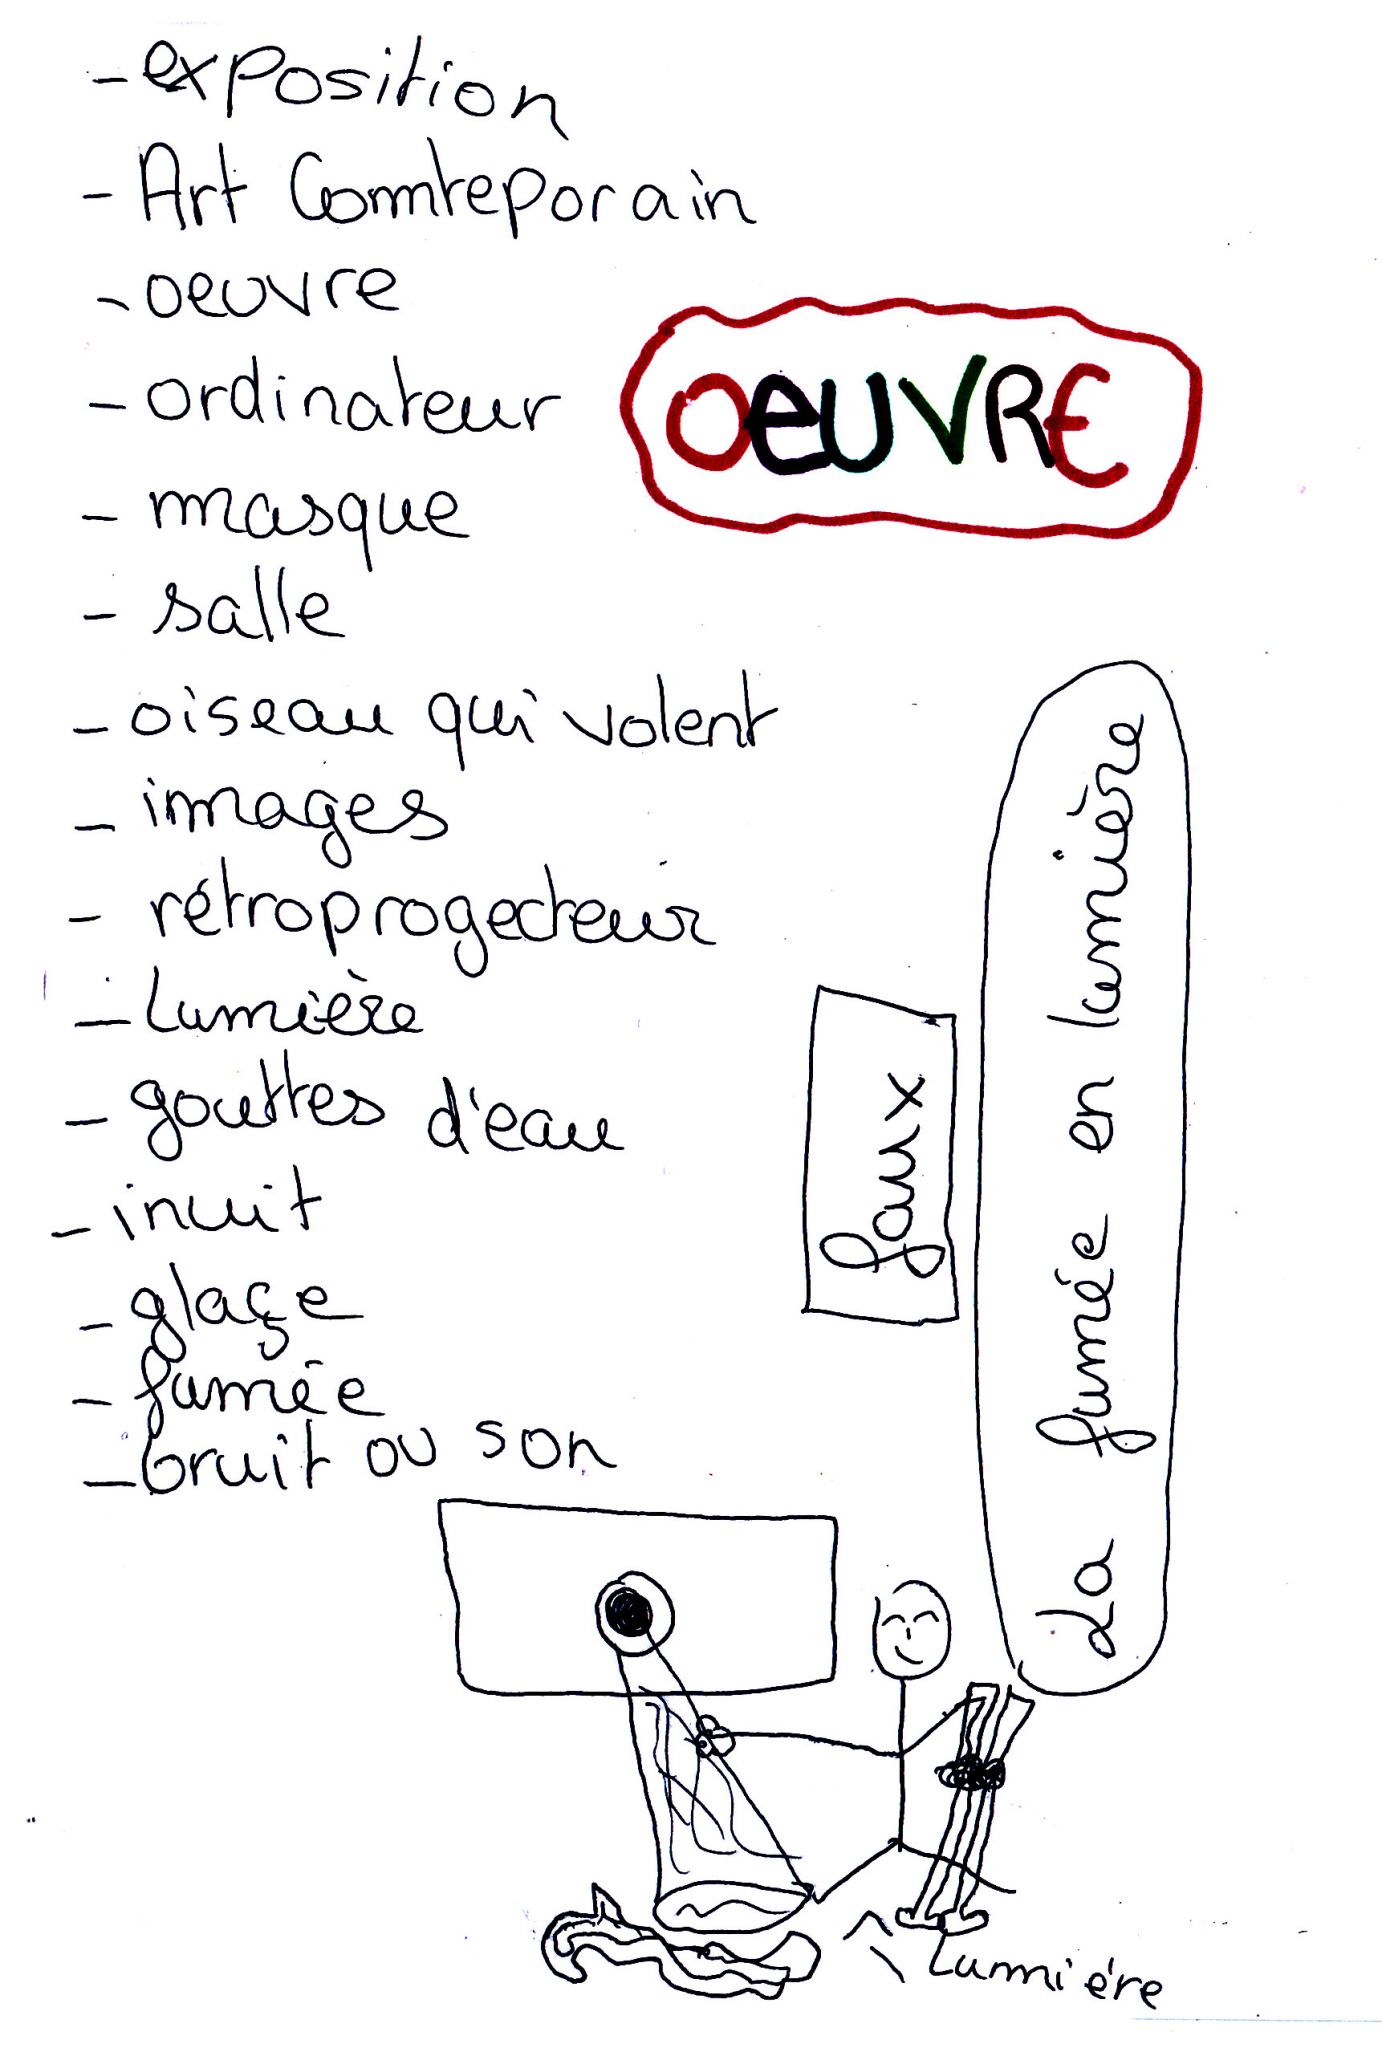 - exposition
- Art Commteporain
- oeuvre
- ordinateur
OEUVRE
- masque
- salle
- oiseau qui volent
- images
- rétroprogecteur
- Lumière
- gouttes d'eau
- inuit
- glaçe
- fumée
- bruit ou son
faux
La fumée en lumière
Lumiére